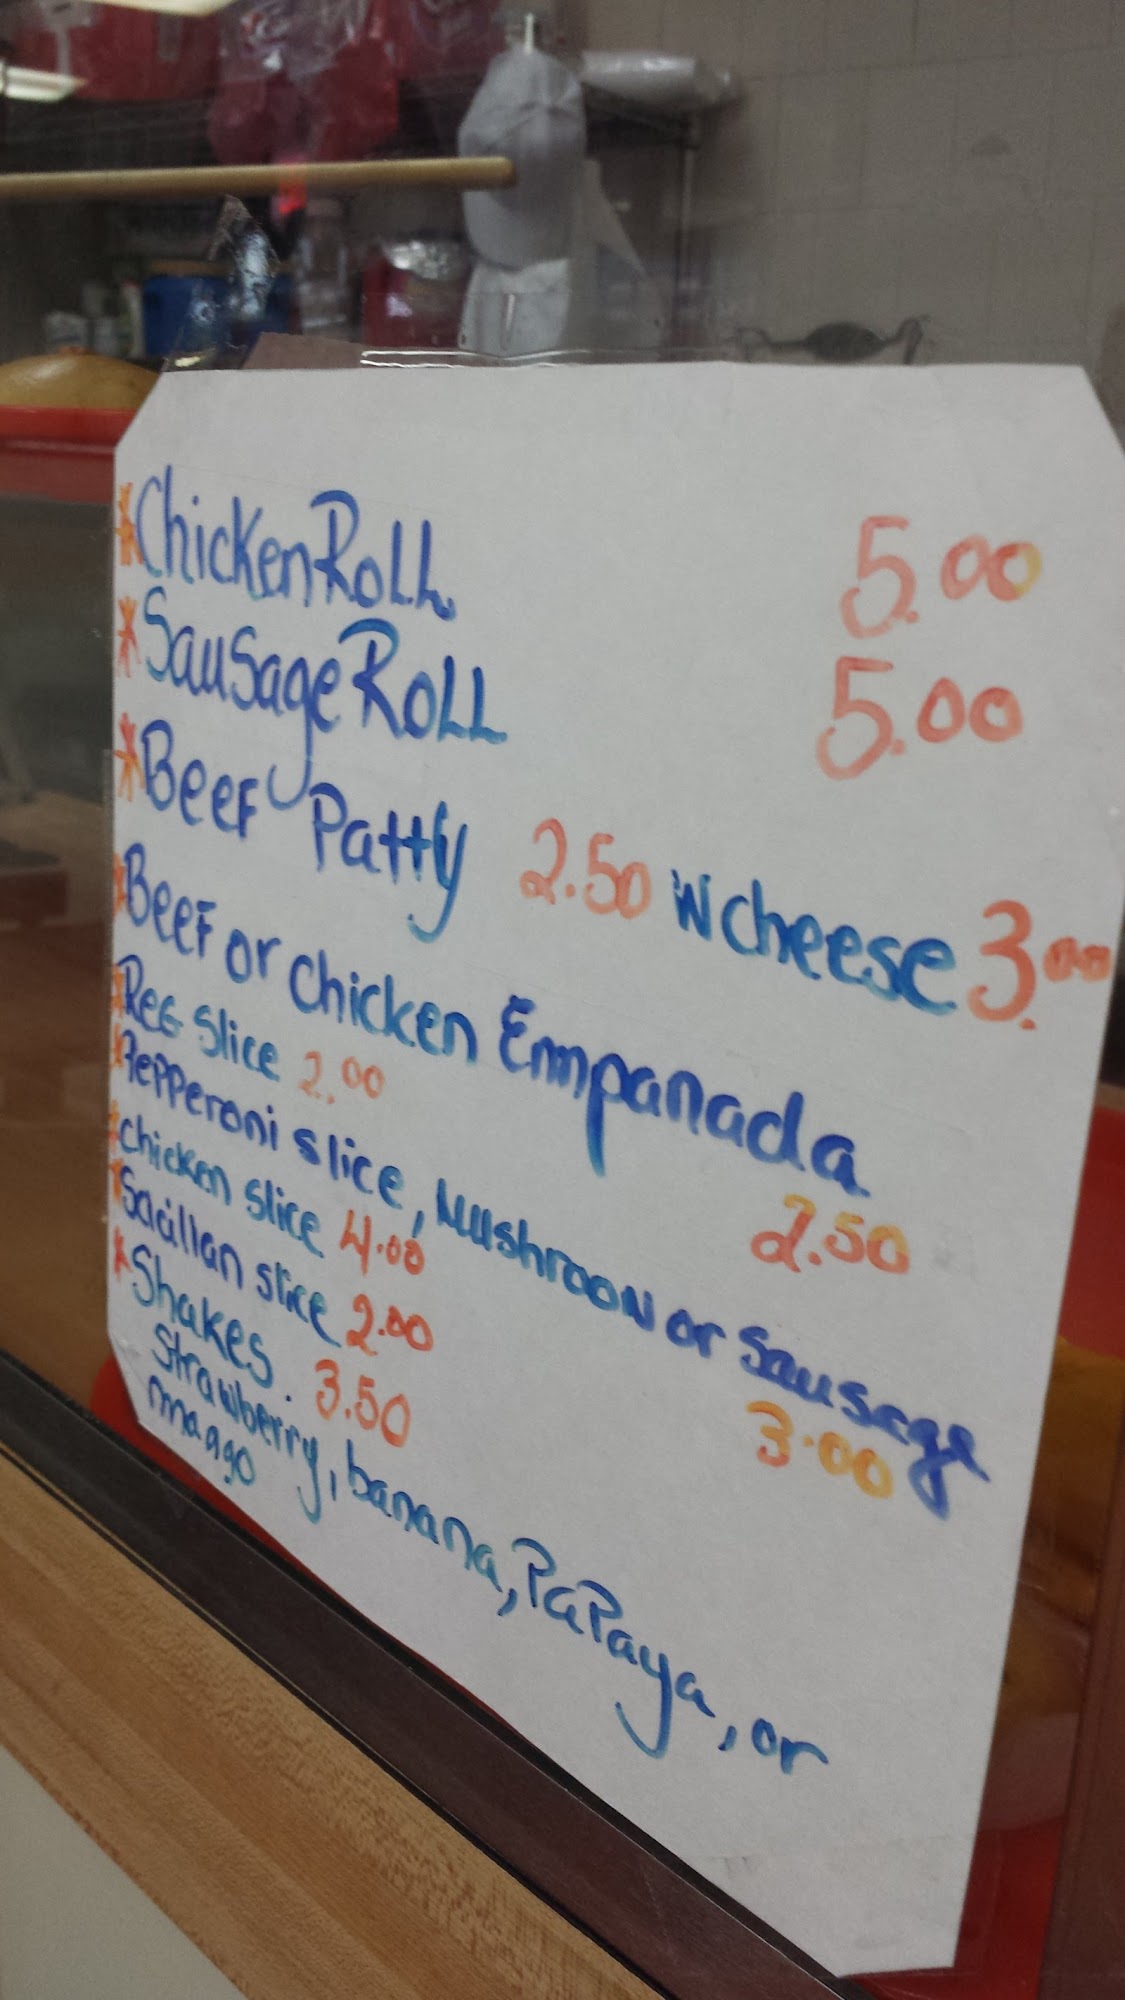 *Chicken Roll 5.00
*Sausage Roll 5.00
*Beef Patty 2.50 W cheese 3.00
*Beef or chicken Empanada 2.50
*Reg slice 2.00
*Pepperoni slice, Mushroom or Sausage 3.00
*chicken slice 4.00
*Sacillan slice 2.00
*Shakes. 3.50
Strawberry, banana, Papaya, or
mango